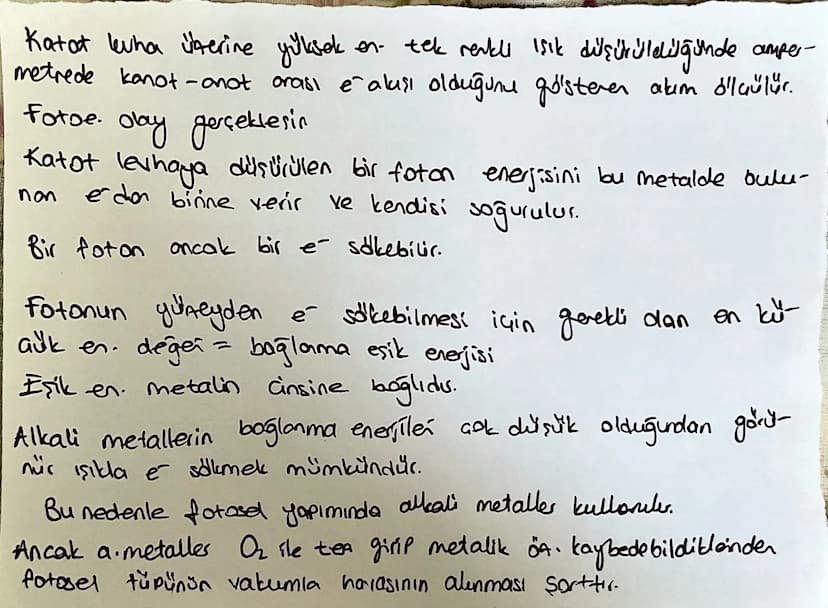 Katot levha üzerine yüksek en. tek renkli ışık düşürüldüğünde amper-
metrede kanot-anot arası e⁻ akışı olduğunu gösteren akım ölçülür.
Fotoe. olay gerçekleşir
Katot levhaya düşürülen bir foton enerjisini bu metalde bulu-
nan e⁻dan birine verir ve kendisi soğurulur.
Bir foton ancak bir e⁻ sökebilir.
Fotonun yüzeyden e⁻ sökebilmesi için gerekli olan en kü-
çük en. değeri = bağlanma eşik enerjisi
Eşik en. metalin cinsine bağlıdır.
Alkali metallerin bağlanma enerjileri çok düşük olduğundan görü-
nür ışıkla e⁻ sökmek mümkündür.
Bu nedenle fotosel yapımında alkali metaller kullanılır.
Ancak a.metaller O₂ ile tep girip metalik öz. kaybedebildiklerinden
fotosel tüpünün vakumla havasının alınması şarttır.